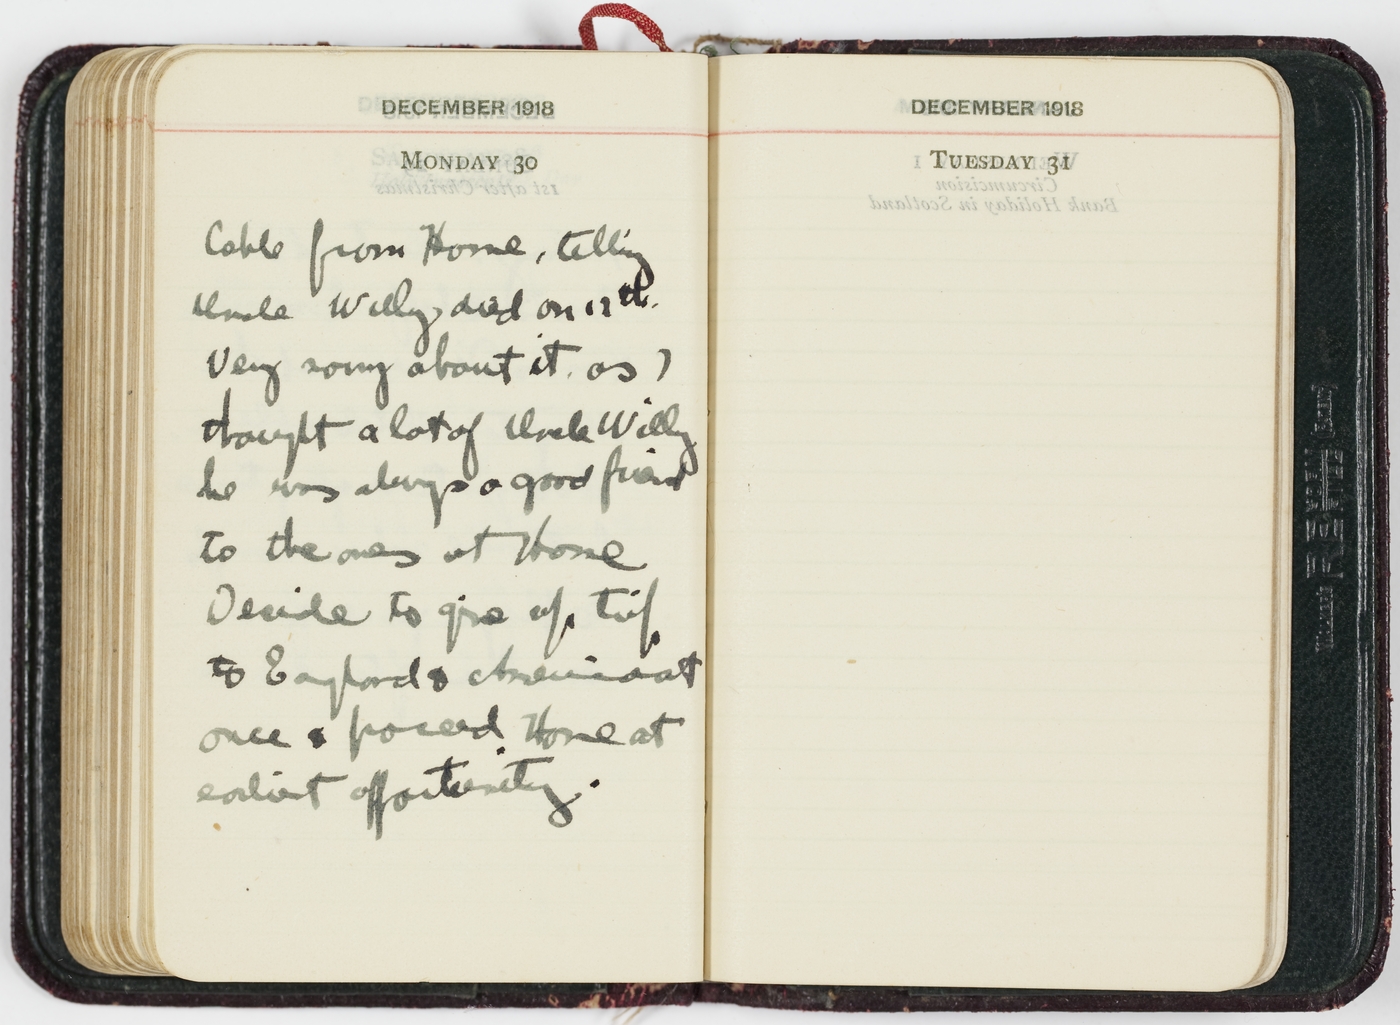 DECEMBER 1918
MONDAY 30
Cable from Home, telling
Uncle Willy died on 12th.
Very sorry about it. as I
thought a lot of Uncle Willy
he was always a good friend
to the ones at Home
Decide to give up trip
to England & America at
once & proceed Home at
earliest opportunity.
DECEMBER 1918
TUESDAY 31